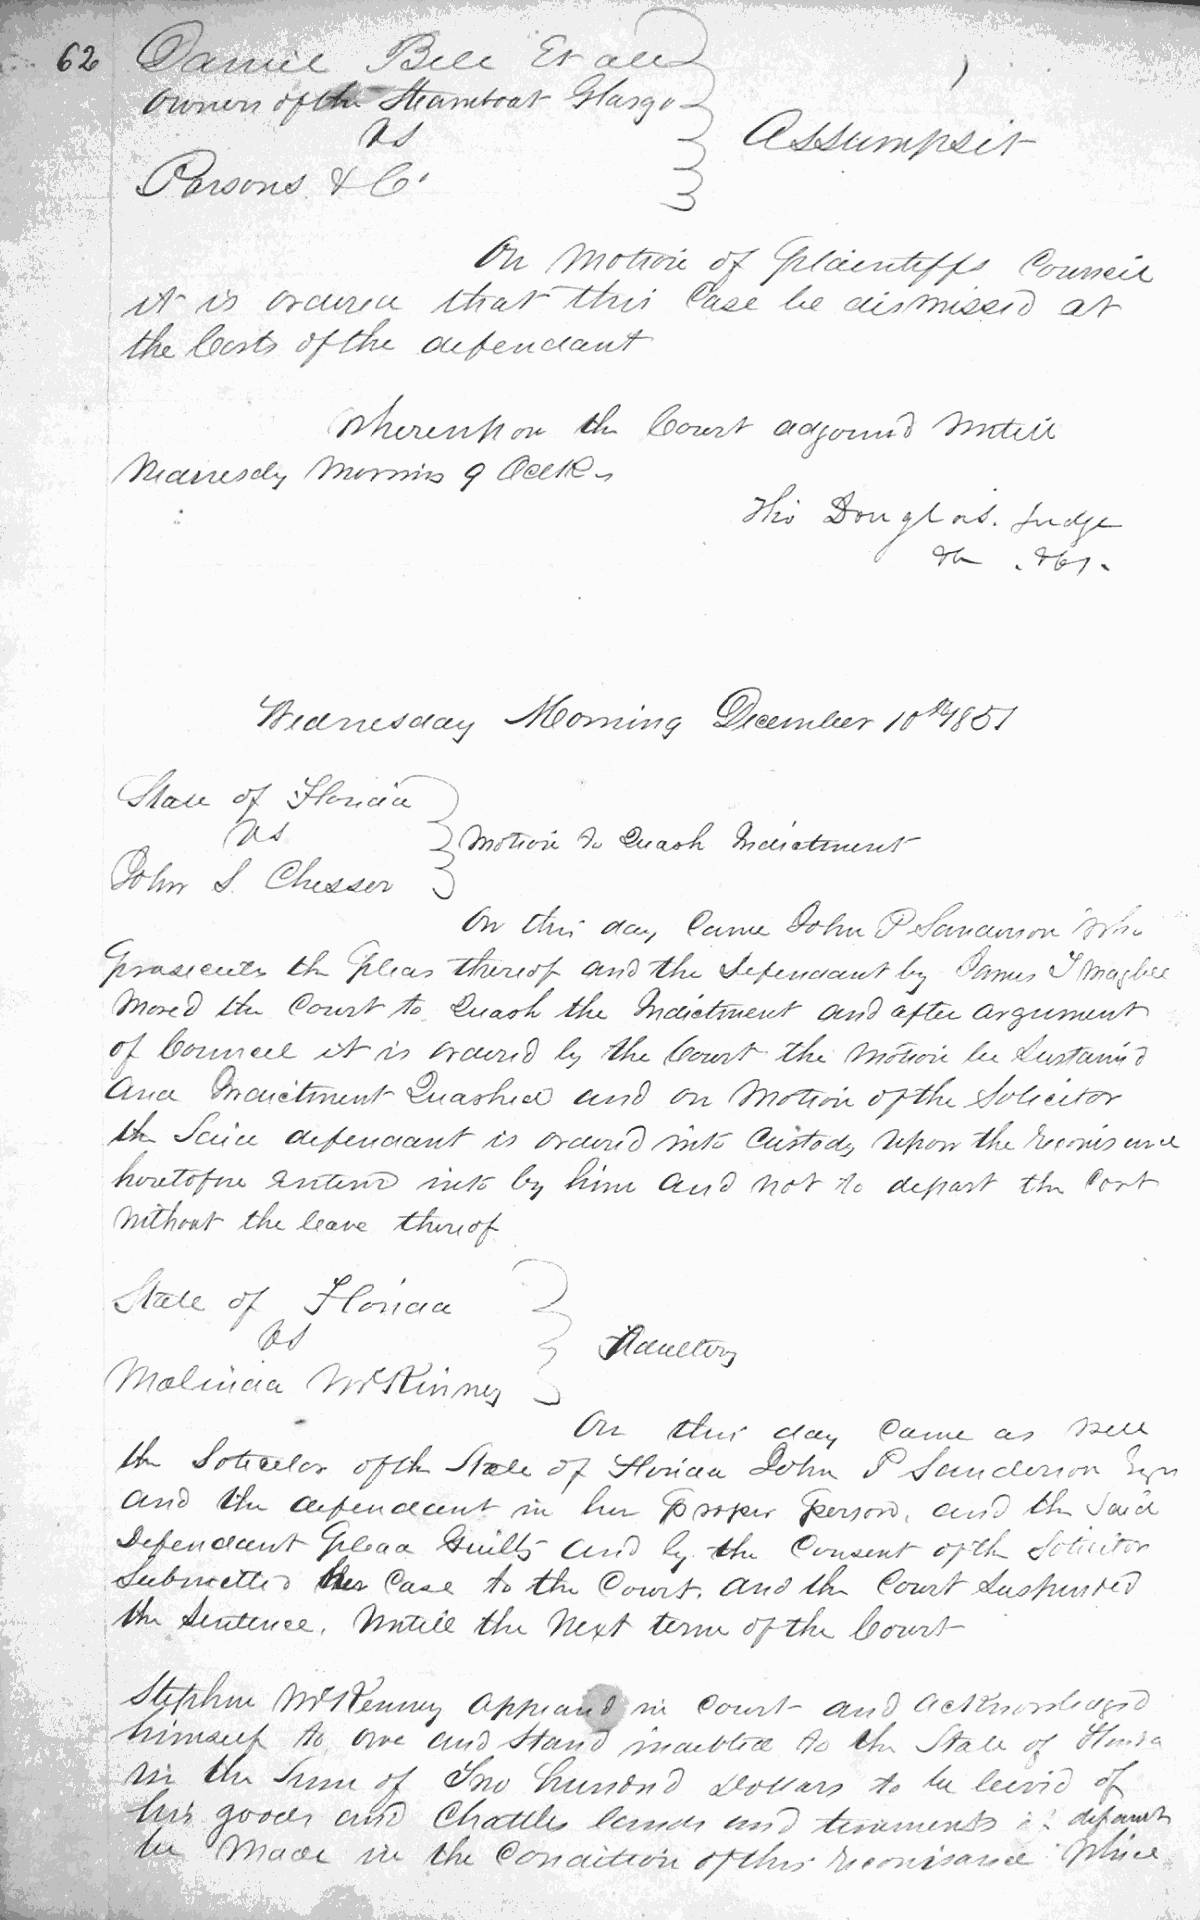 62 Daniel Bell Et als
Owners of the Steamboat Glasgo
vs
Parsons & Co.
Assumpsit
On Motion of Plaintiffs Council
it is ordered that this Case be dismissed at
the Costs of the defendant
Whereupon the Court adjournd Untill
Wednesdy Morning 9 Oclk
Tho Douglas. Judge
&c. &c.
Wednesday Morning December 10th 1851
State of Florida
vs
John S. Chesser
Motion to Quash Indictment
On this day Came John P Sanderson who
prosecutes the Pleas thereof and the Defendant by James T Magbee
Moved the Court to Quash the Indictment and after argument
of Council it is orderd by the Court the Motion be Sustaind
and Indictment Quashed and on Motion of the Solicitor
the Said defendant is orderd into Custody upon the reconisance
heretofore enterd into by him and not to depart the Cort
without the leave thereof
State of Florida
vs
Malinda McKinney
Adultery
On this day Came as well
the Soliceter of the State of Florida John P Sanderson Esqr
and the defendant in her Proper Person, and the Said
Defendant Plead Guilty and by the Consent of the Solicitor
Submitted her Case to the Court. and the Court Suspended
the Sentence, Untill the Next term of the Court
Stephen McKenney Appeard in Court and acknowledged
himself to owe and Stand indebted to the State of Florida
in the Sum of Two hundred Dollars to be levid of
his goods and Chattles lands and tenements if default
be Made in the Condition of this reconisance which